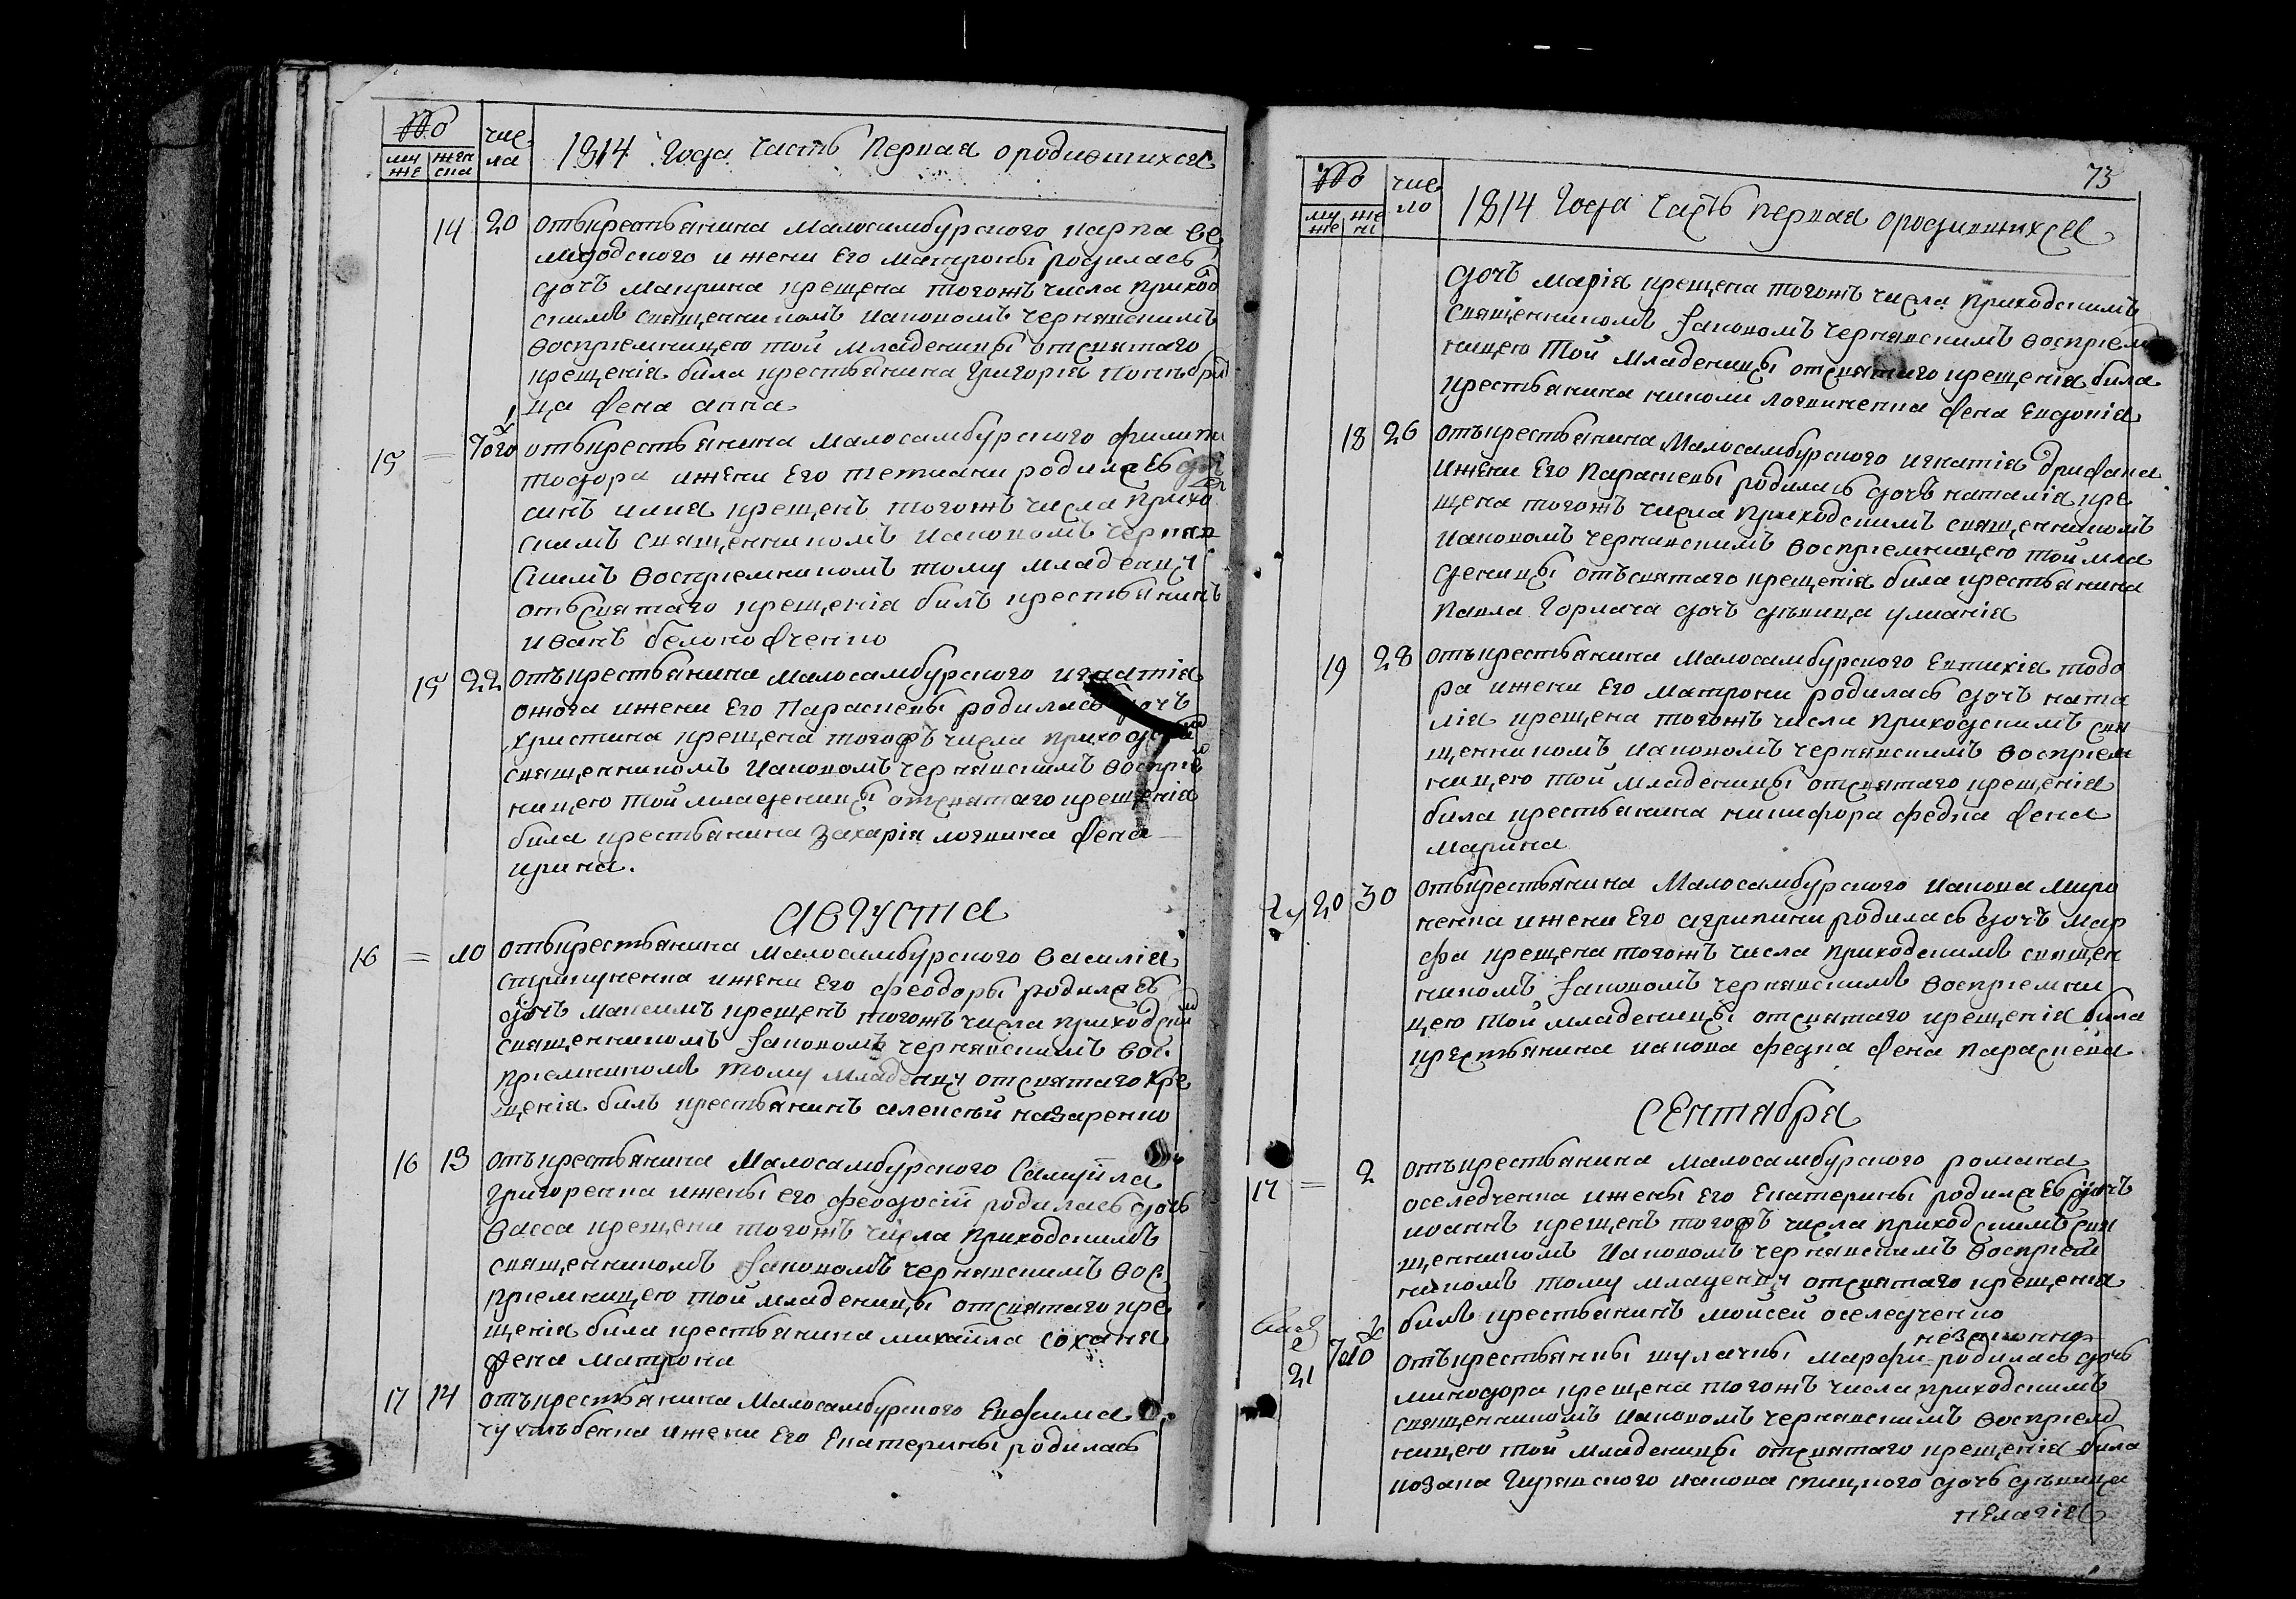 №
му же
жен ска
чис ла
1814 Года Часть Первая ородившихся
14 20 отъкрестьянина Малосамбурского карпа ве
лиходского и жени Его матроны родилась
дочь макрина крещена тогожъ числа приход
скимъ священникомъ Иаковомъ чернявскимъ
восприемницею той младеницы отсвятаго
крещенія била крестьянина григорія
ца жена анна
15 = Того отъкрестьянина малосамбурского филипа
тодора ижени Его тетиани родилась
синъ илия крещенъ тогожъ числа прихо
скимъ священникомъ Иаковомъ черняв
скимъ восприемникомъ тому младенцу
отьсвятаго крещенія билъ крестьянинъ
иванъ белоноженко
15 22 отъкрестьянина малосамбурского игнатія
ожога ижени Его Параскевы родилась дочъ
христина крещена тогожъ числа приходским
священникомъ Иаковомъ чернявскимъ восприе
ницею той младеницы отсвятаго крещенія
била крестьянина захарія логвина жена
ирина.
августа
16 = 10 отъкрестьянина малосамбурского василія
ижени Его феодоры родилась
дочъ максимъ крещенъ тогожъ числа приходским
священникомъ Іаковомъ чернявскимъ вос
приемникомъ тому младенцу отсвятаго кре
щенія билъ крестьянинъ алексей назаренко
16 13 отъкрестьянина Малосамбурского Самуйла
григоренка ижены его феодосіи родилась дочъ
васса крещена тогожъ числа приходскимъ
священникомъ Іаковомъ чернявскимъ вос
приемницею той младеницы отсвятаго кре
щенія била крестьянина михайла сохана
жена матрона
17 14 отъкрестьянина Малосамбурского Евфима
чухлѣбенка ижени Его Екатерины родилась
73
№
му же
же ни
чис ло
1814 Года Часть первая ородившихся
дочъ марія крещена тогожъ числа приходскимъ
священникомъ Іаковомъ чернявскимъ восприем
ницею той младеницы отсвятаго крещенія била
крестьянина николи логвиненка жена Евдокія
18 26 отъкрестьянина Малосамбурского игнатія
ижени Его Параскевы родилась дочъ наталія кре
щена тогожъ числа приходскимъ священникомъ
Иаковомъ чернявскимъ восприемницею той мла
деницы отъсвятаго крещенія била крестьянина
Павла Горлача дочъ дѣвица улианія
19 28 отъкрестьянина Малосамбурского Евтихія тодо
ра ижени Его матрони родилась дочъ ната
лія крещена тогожъ числа приходскимъ свя
щенникомъ Иаковомъ чернявскимъ восприем
ницею той младеницы отсвятаго крещенія
била крестьянина никифора федка жена
марина
20 30 отъкрестьянина Малосамбурского иакова миро
ненка ижени Его агрипини родилась дочъ мар
фа крещена тогожъ числа приходскимъ священ
никомъ Іаковомъ чернявскимъ восприемни
цею той младеницы отсвятаго крещенія била
крестьянина иакова федка жена параскева
сентября
17 = 2 отъкрестьянина малосамбурского романа
оселедченка ижены Его Екатерины родилась дочъ
иоаннъ крещенъ тогожъ числа приходскимъ свя
щенникомъ Иаковомъ чернявскимъ восприем
никомъ тому младенцу отсвятаго крещенія
билъ крестьянинъ моисей оселедченко
незаконно
21 Того отъкрестьянки шулачки марфи родилась дочъ
минодора крещена тогожъ числа приходскимъ
священникомъ Иаковомъ чернявскимъ восприем
ницею той младеницы отсвятаго крещенія била
козака Гирявского иакова спицкого дочъ дѣвица
пелагія